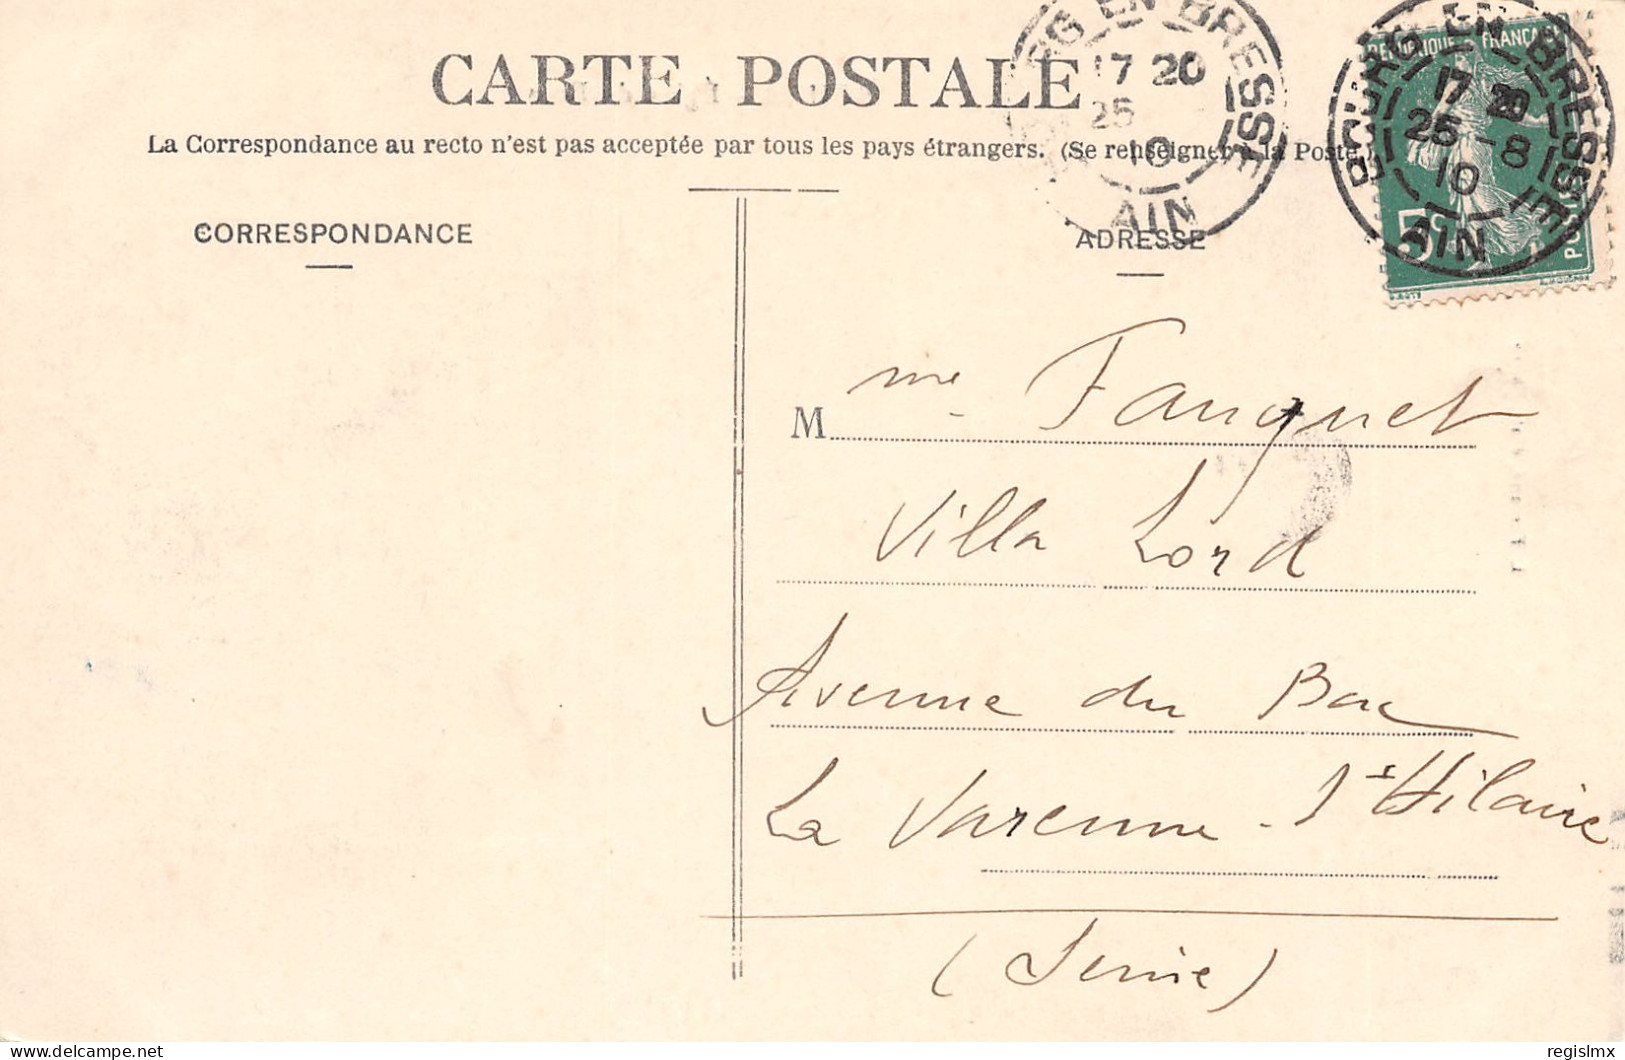 CARTE POSTALE
La Correspondance au recto n'est pas acceptée par tous les pays étrangers. (Se renseigner à la Poste.)
CORRESPONDANCE
ADRESSE
BOURG EN BRESSE
17 20
25
10
AIN
BOURG EN BRESSE
17 20
25 - 8
10
AIN
REPUBLIQUE FRANÇAISE
POSTES
5c
M me Fauquet
Villa Lord
Avenue du Bac
La Varenne - St Hilaire
(Seine)
delcampe.net
regislmx